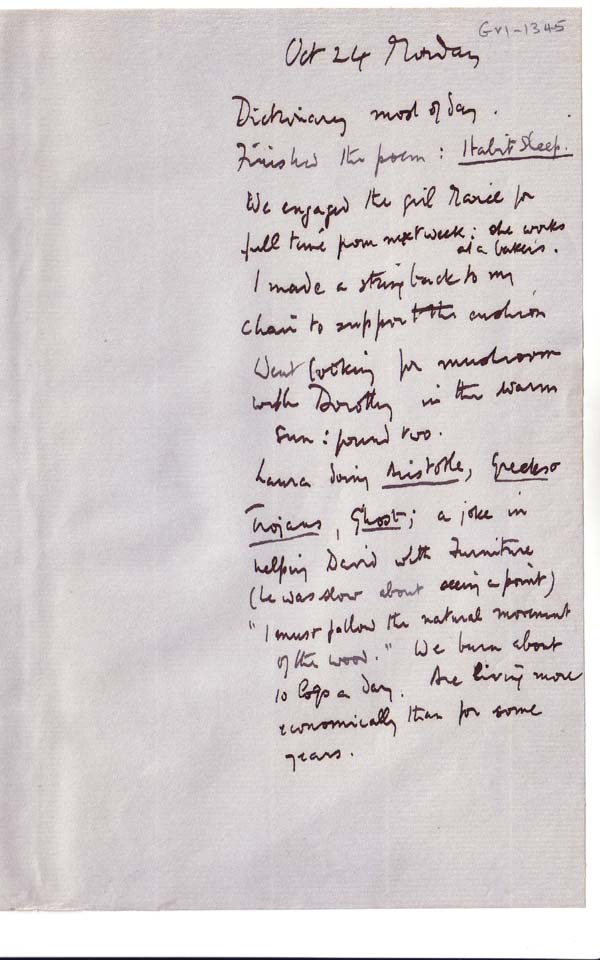 GV1-1345
Oct 24 Monday
Dictionary most of day.
Finished the poem: Habit Sleep.
We engaged the girl Marie for
full time from next week: she works
at a baker's.
I made a string back to my
chair to support the cushion
Went looking for mushroom
with Dorothy in the warm
sun: found two.
Laura doing Aristotle, Greeks &
Trojans, Ghost; a joke in
helping David with Furniture
(he was slow about seeing a point)
"I must follow the natural movement
of the wood." We burn about
10 logs a day. Are living more
economically than for some
years.